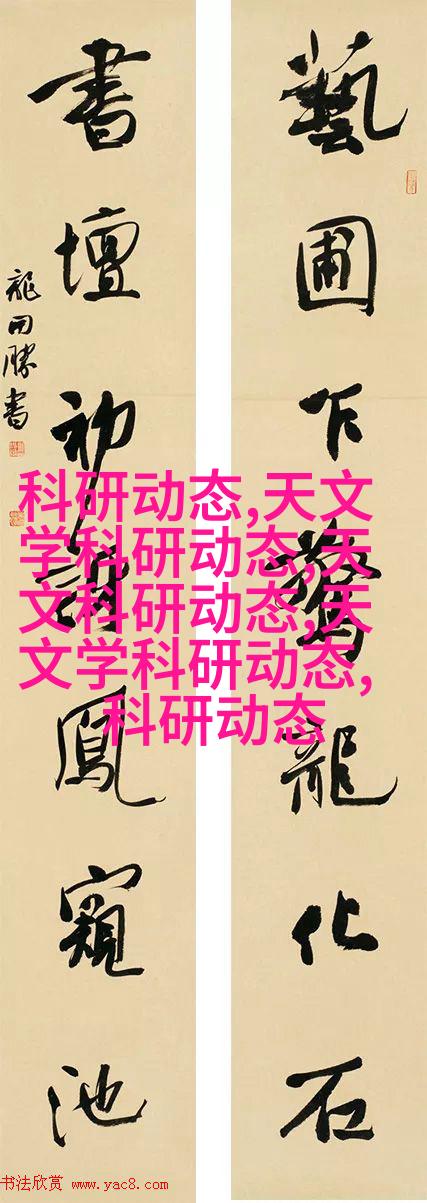 藝圃乍驚龍化石
書壇初鳳窺池
龍開勝書
科研动态,天文
学科研动态,天
文科研动态,天
文学科研动态,
科研动态
书法欣赏 www.yac8.com